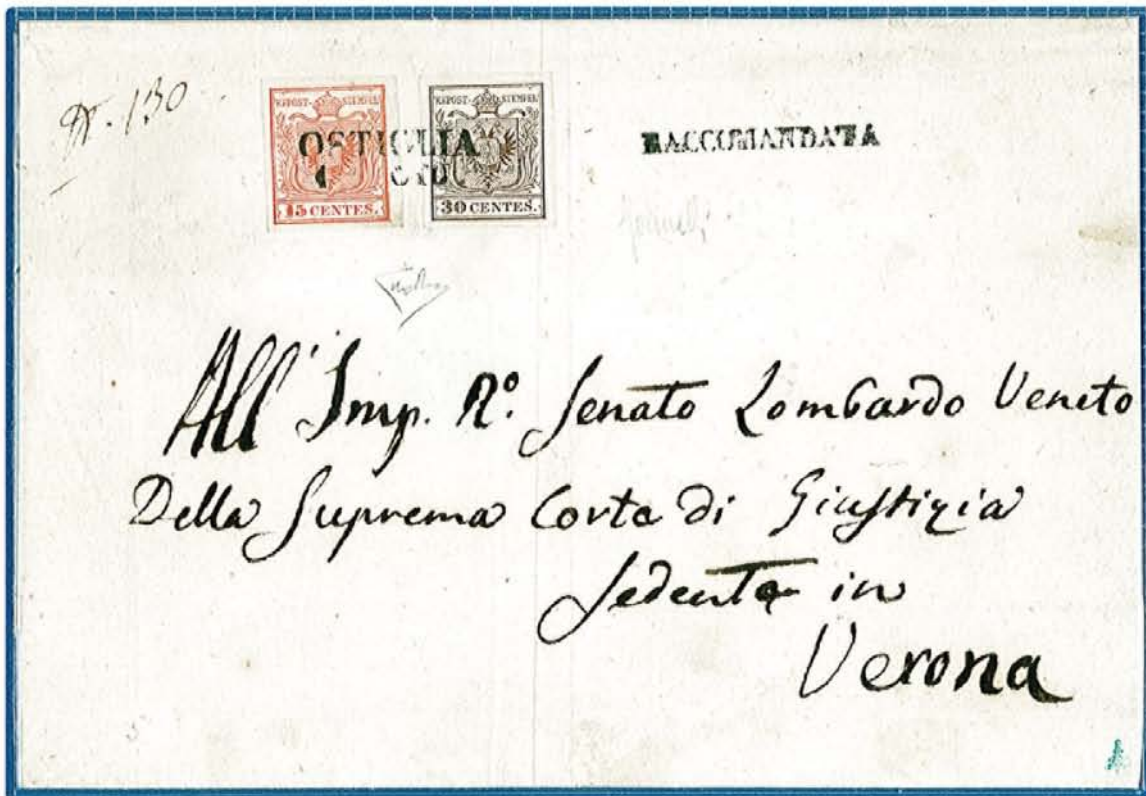 N. 130
K.K.POST-STEMPEL
K.K.POST-STEMPEL
OSTIGLIA
15 CENTES.
30 CENTES.
RACCOMANDATA
All' Imp. R.º Senato Lombardo Veneto
Della Suprema Corte di Giustizia
Sedente in
Verona